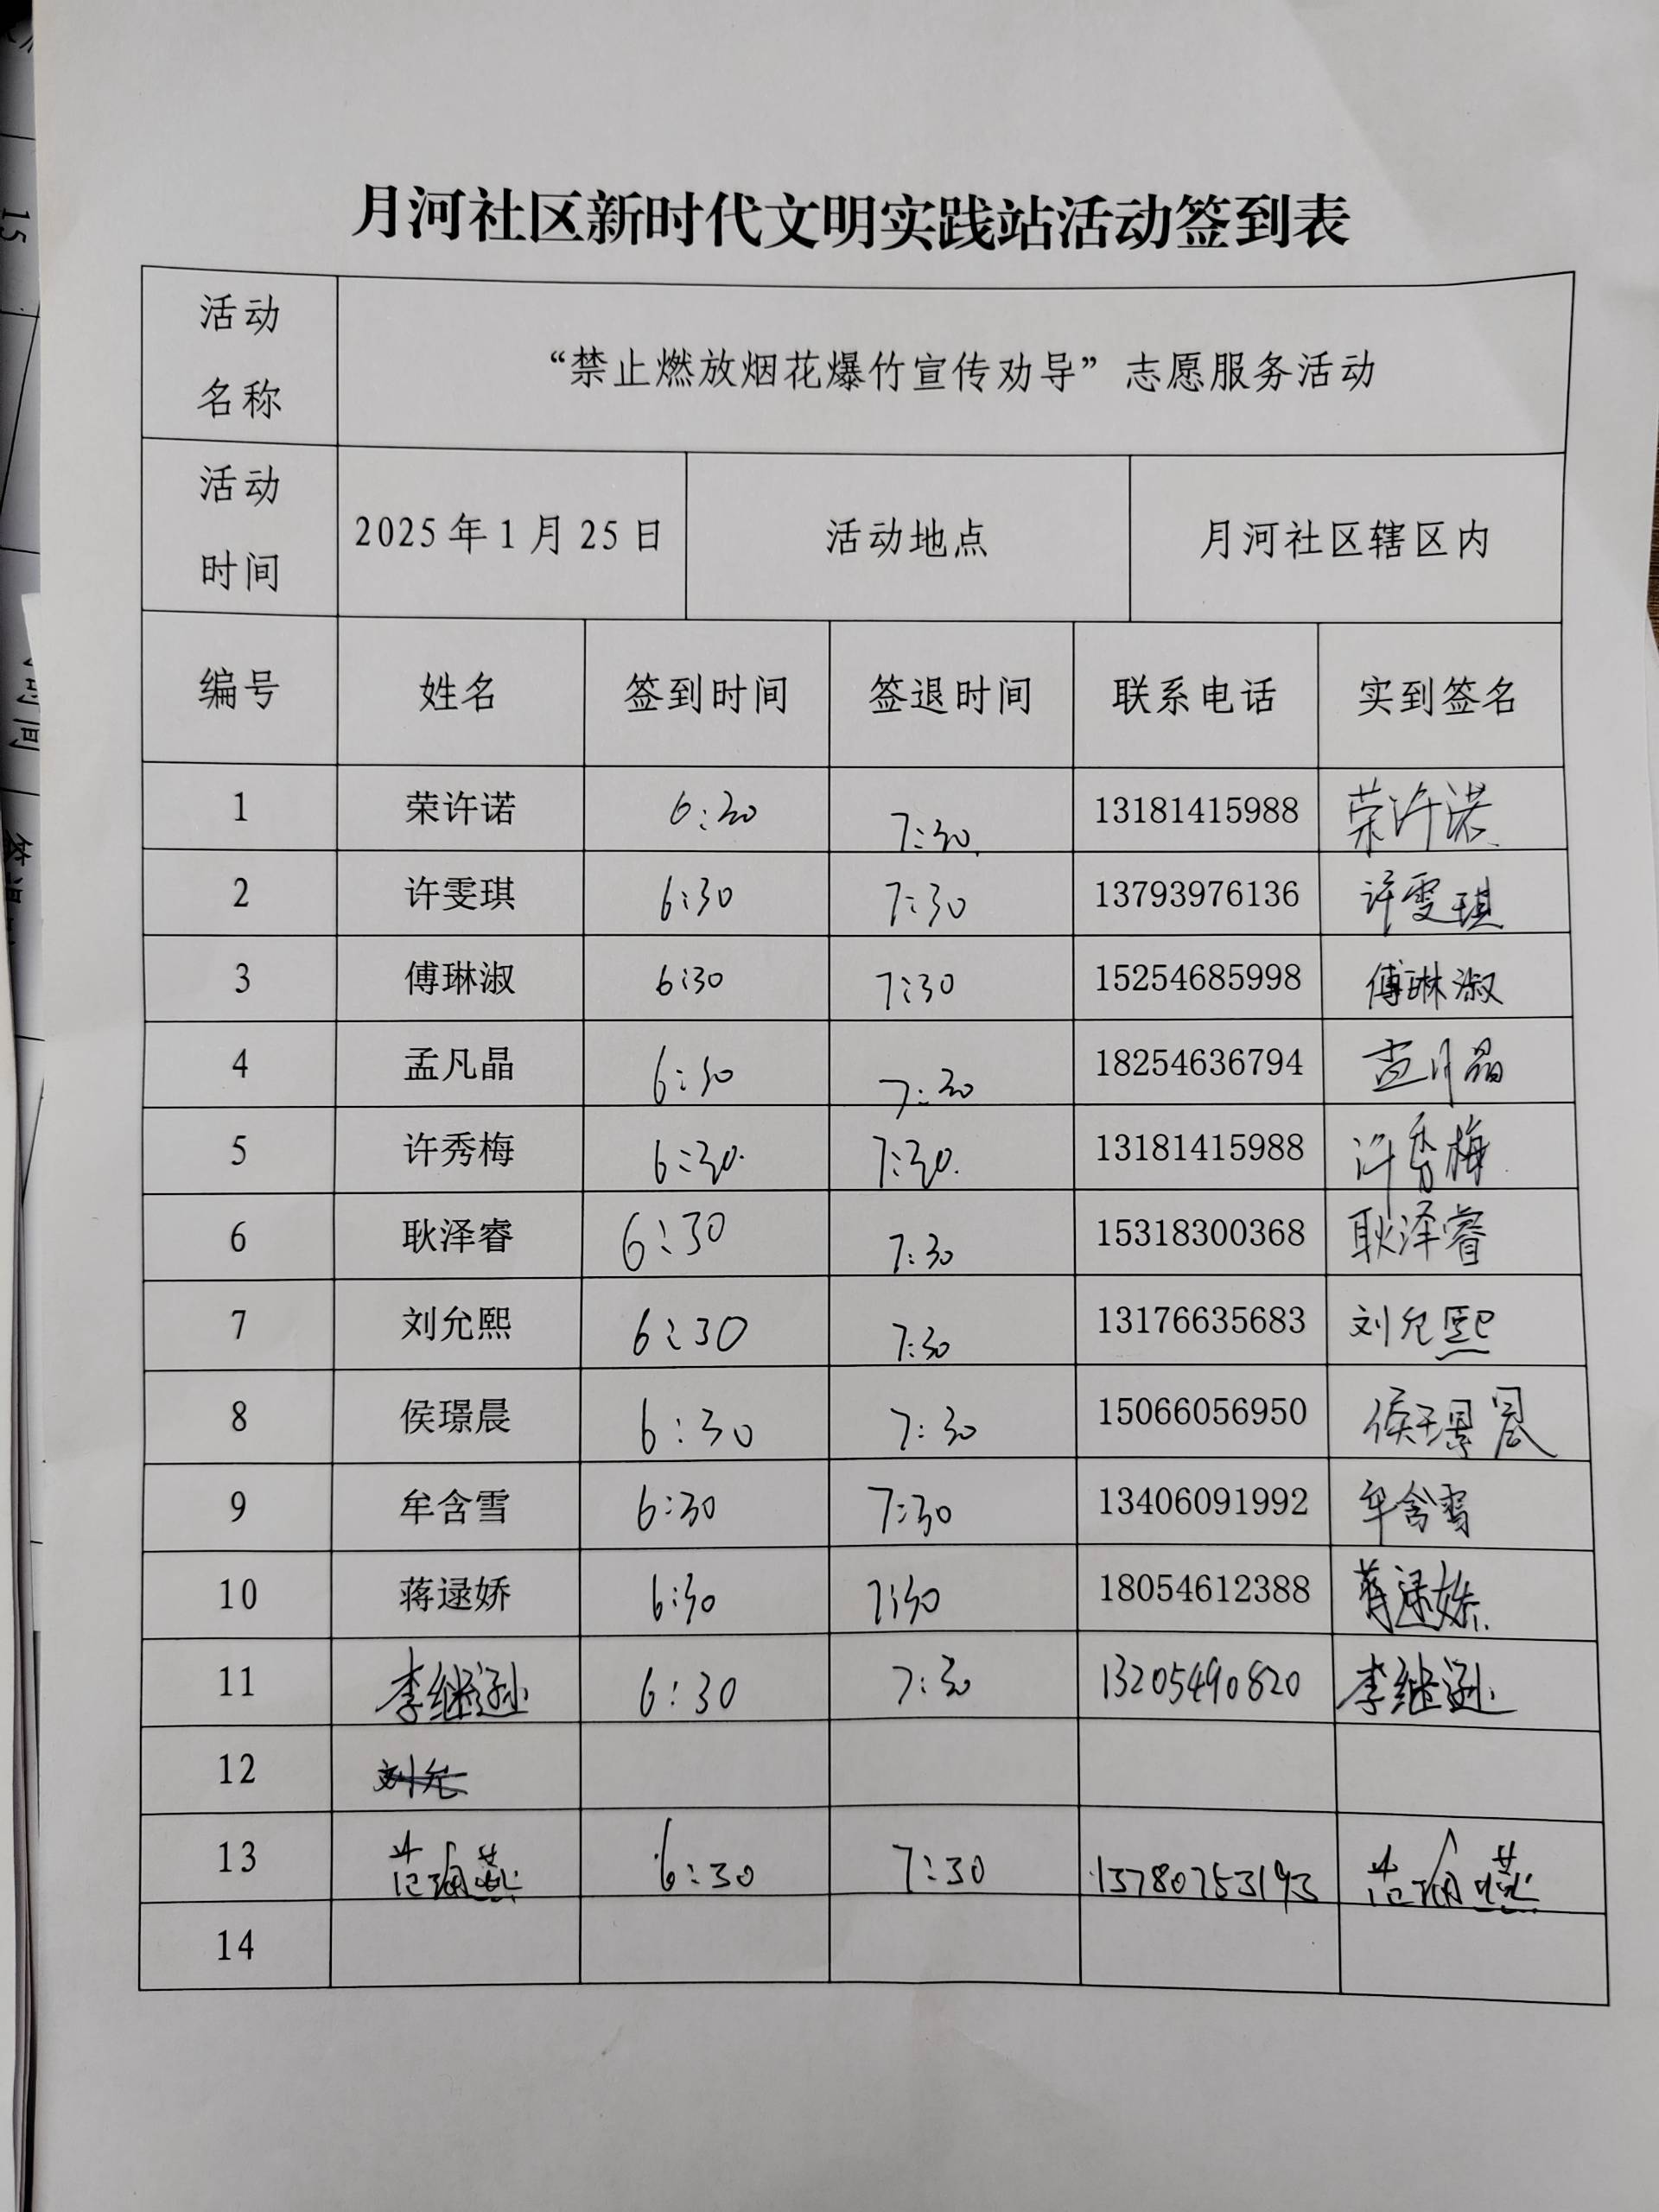 月河社区新时代文明实践站活动签到表
活动名称 “禁止燃放烟花爆竹宣传劝导”志愿服务活动
活动时间 2025年1月25日 活动地点 月河社区辖区内
编号 姓名 签到时间 签退时间 联系电话 实到签名
1 荣许诺 6:30 7:30 13181415988 荣许诺
2 许雯琪 6:30 7:30 13793976136 许雯琪
3 傅琳淑 6:30 7:30 15254685998 傅琳淑
4 孟凡晶 6:30 7:30 18254636794 孟凡晶
5 许秀梅 6:30 7:30 13181415988 许秀梅
6 耿泽睿 6:30 7:30 15318300368 耿泽睿
7 刘允熙 6:30 7:30 13176635683 刘允熙
8 侯璟晨 6:30 7:30 15066056950 侯璟晨
9 牟含雪 6:30 7:30 13406091992 牟含雪
10 蒋逯娇 6:30 7:30 18054612388 蒋逯娇
11 李继逊 6:30 7:30 13205490820 李继逊
12 刘允
13 6:30 7:30 13780753193
14